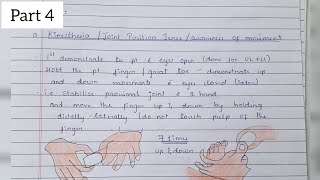 Part 4
Kinesthesia / Joint Position Sense / awareness of movement
1st demonstrate to pt c̄ eyes open (done for UL + LL)
Hold the pt finger / great toe - demonstrate up
and down movements c̄ eyes closed
i.e stabilise proximal joint c̄ 1 hand
and move the finger up & down by holding
distally - laterally (do not touch pulp of the
finger
7 times
up & down